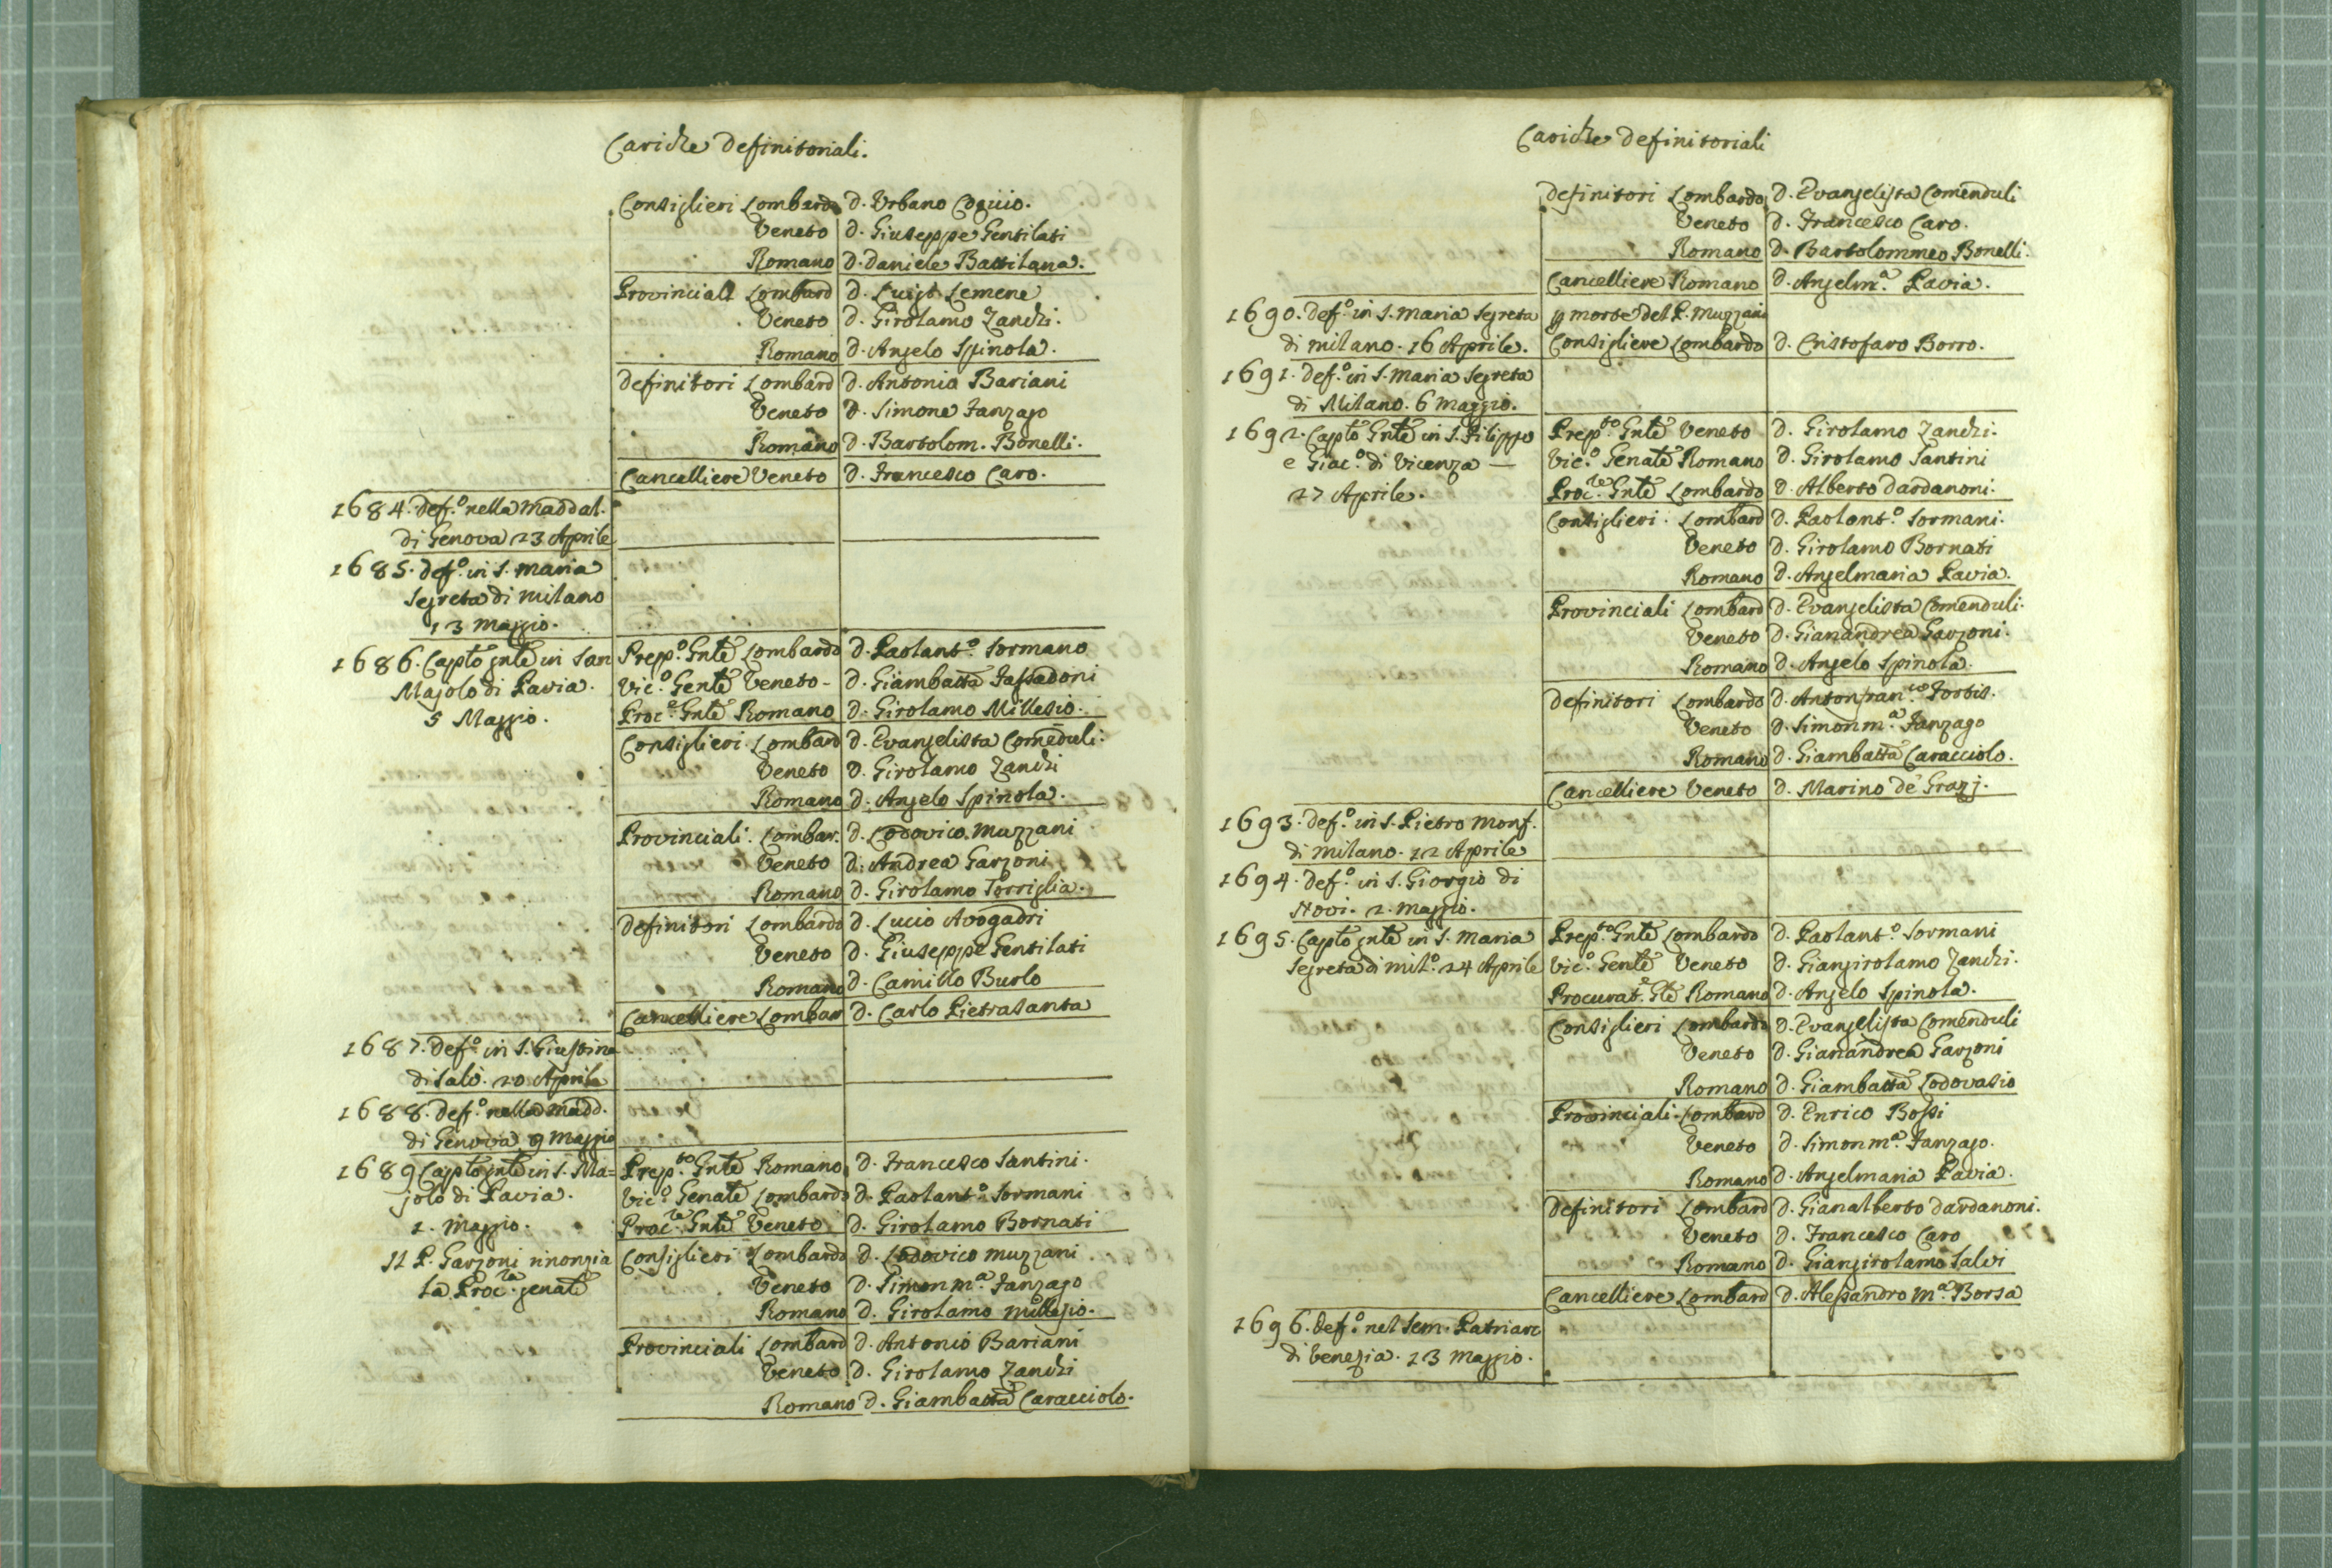 Cariche Definitoriali.
Consiglieri Lombardo D. Urbano
Veneto D. Giuseppe Gentilati
Romano D. Daniele Battilana.
Provinciali Lombard D. Luigi Lemene
Veneto D. Girolamo Zanchi.
Romano D. Angelo Spinola.
Definitori Lombard D. Antonio Bariani
Veneto D. Simone Fanzago
Romano D. Bartolom. Bonelli.
Cancelliere Veneto D. Francesco Caro.
1684. Def.º nella Maddal.
di Genova 23 Aprile
1685. Def.º in S. Maria
Segreta di Milano
13 Maggio.
1686. Capto gnle in San Prep.º Gnle Lombardo D. Paolant.º Sormano
Majolo di Pavia. Vic.º Genle Veneto - D. Giambatta Fassadoni
5 Maggio. Proc.e Gnle Romano D. Girolamo Millesio.
Consiglieri Lombard D. Evangelista Comēduli.
Veneto D. Girolamo Zanchi
Romano D. Angelo Spinola.
Provinciali. Lombar. D. Lodovico Muzzani
Veneto D. Andrea Garzoni
Romano D. Girolamo Torriglia.
Definitori Lombardo D. Lucio Avogadri
Veneto D. Giuseppe Gentilati
Romano D. Camillo Burlo
Cancelliere Lombar D. Carlo Pietrasanta
1687. Def.º in S. Giustina
di Salò. 20 Aprile
1688. Def.º nella Madd.
di Genova 9 Maggio
1689 Capto gnle in S. Ma= Prep.to Gnle Romano D. Francesco Santini.
jolo di Pavia. Vic.º Genale Lombardo D. Paolant.º Sormani
1. Maggio. Proc.re Gnle Veneto D. Girolamo Bornati
Il P. Garzoni rinonzia Consiglieri Lombardo D. Lodovico Muzzani
la Proc.ra genale Veneto D. Simon m.a Fanzago
Romano D. Girolamo Millesio.
Provinciali Lombard D. Antonio Bariani
Veneto D. Girolamo Zanchi
Romano D. Giambatta Caracciolo.
Cariche Definitoriali
Definitori Lombardo D. Evangelista Comenduli
Veneto D. Francesco Caro.
Romano D. Bartolommeo Bonelli.
Cancelliere Romano D. Angelm.a Pavia.
1690. Def.º in S. Maria Segreta p morte del P. Muzzani
di Milano. 16 Aprile. Consigliere Lombardo D. Cristofaro Borro.
1691. Def.º in S. Maria Segreta
di Milano. 6 Maggio.
1692. Capto Gnle in S. Filippo Prep.to Gnle Veneto D. Girolamo Zanchi.
e Giac.º di Vicenza — Vic.º Genale Romano D. Girolamo Santini
27 Aprile. Proc.re Gnle Lombardo D. Alberto Dardanoni.
Consiglieri. Lombard D. Paolant.º Sormani.
Veneto D. Girolamo Bornati
Romano D. Angelmaria Pavia.
Provinciali Lombard D. Evangelista Comenduli.
Veneto D. Gianandrea Garzoni.
Romano D. Angelo Spinola.
Definitori Lombardo D. Antonfran.co Torbis.
Veneto D. Simon m.a Fanzago
Romano D. Giambatta Caracciolo.
Cancelliere Veneto D. Marino de Grazj.
1693. Def.º in S. Pietro Monf.
di Milano. 12 Aprile
1694. Def.º in S. Giorgio di
Novi. 2. Maggio.
1695. Capto gnle in S. Maria Prep.to Gnle Lombardo D. Paolant.º Sormani
Segreta di Mil.º 24 Aprile Vic.º Genle Veneto D. Giangirolamo Zanchi.
Procurat.e Gle Romano D. Angelo Spinola.
Consiglieri Lombardo D. Evangelista Comenduli
Veneto D. Gianandrea Garzoni
Romano D. Giambatta Lodovasio
Provinciali. Lombard D. Enrico Bossi
Veneto D. Simon m.a Fanzago.
Romano D. Angelmaria Pavia.
Definitori Lombard D. Gianalberto Dardanoni.
Veneto D. Francesco Caro
Romano D. Giangirolamo Salvi
Cancelliere Lombard D. Alessandro M.a Borsa
1696. Def.º nel Sem. Patriarc
di Venezia. 13 Maggio.